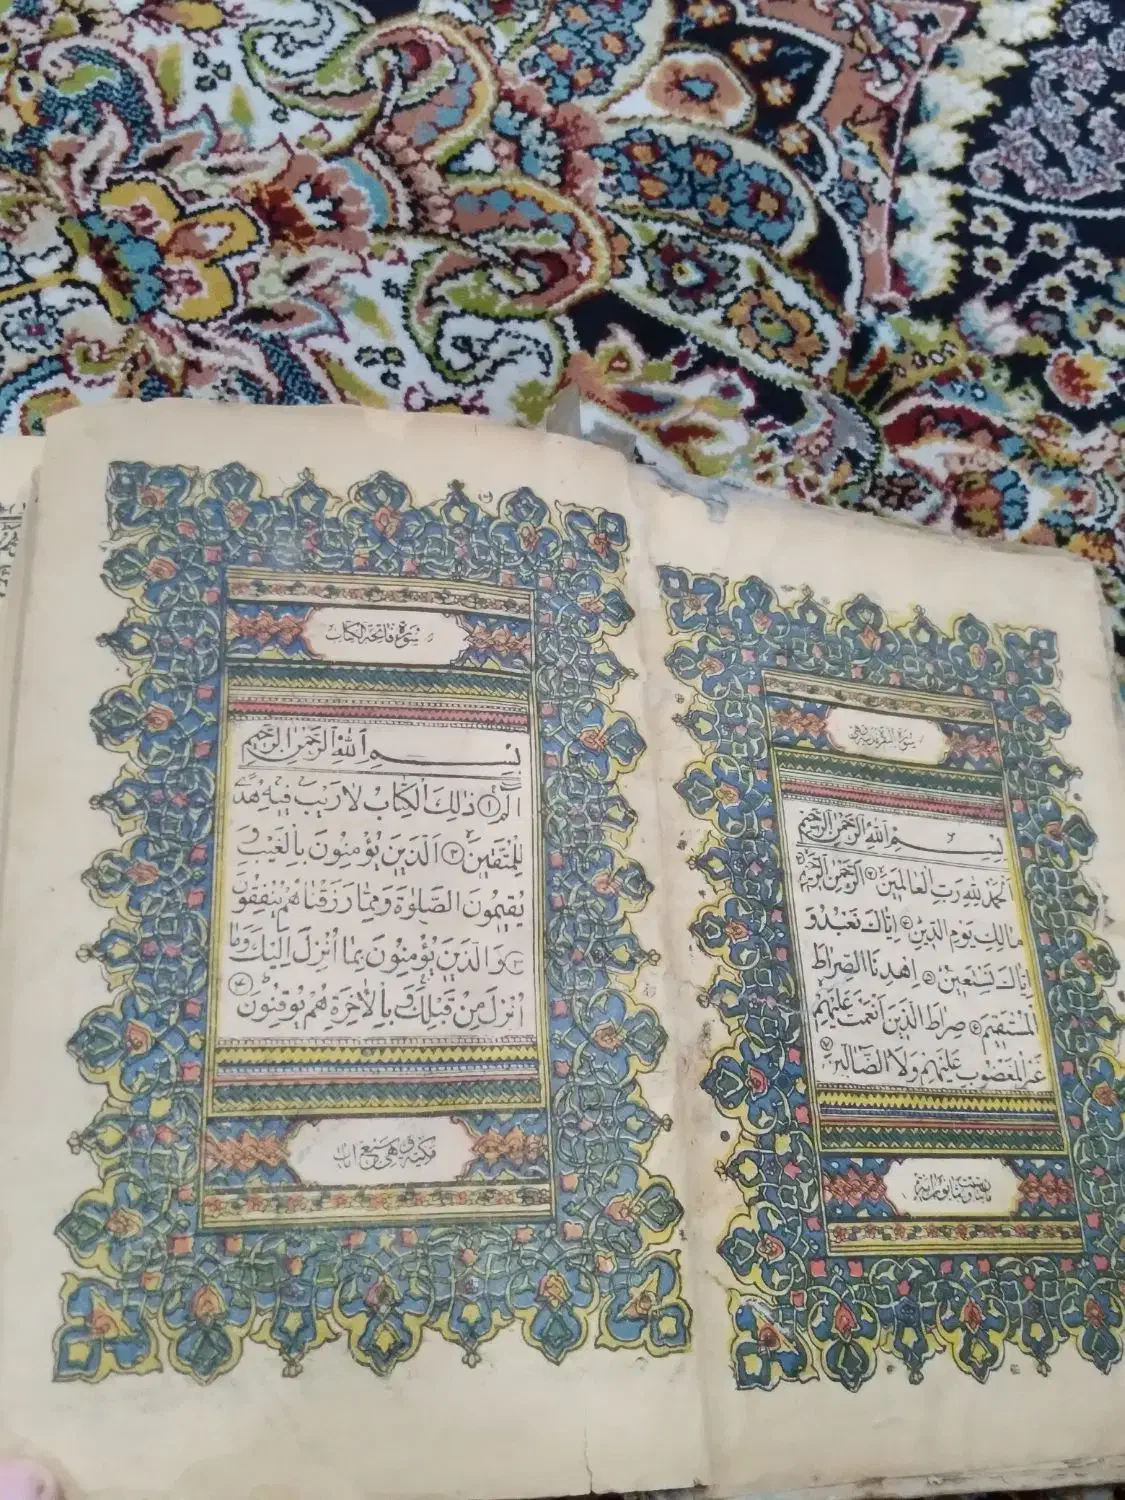 بِسْمِ اللهِ الرَّحْمٰنِ الرَّحِيمِ
اَلْحَمْدُ لِلّٰهِ رَبِّ الْعَالَمِينَ ۲ اَلرَّحْمٰنِ الرَّحِيمِ
مَالِكِ يَوْمِ الدِّينِ ۴ اِيَّاكَ نَعْبُدُ وَ
اِيَّاكَ نَسْتَعِينُ ۵ اِهْدِنَا الصِّرَاطَ
الْمُسْتَقِيمَ ۶ صِرَاطَ الَّذِينَ اَنْعَمْتَ عَلَيْهِمْ
غَيْرِ الْمَغْضُوبِ عَلَيْهِمْ وَلَا الضَّالِّينَ ۷
سُورَةُ فَاتِحَةِ الْكِتَابِ
بِسْمِ اللهِ الرَّحْمٰنِ الرَّحِيمِ
الٓمٓ ۱ ذٰلِكَ الْكِتَابُ لَا رَيْبَ فِيهِ هُدًى
لِلْمُتَّقِينَ ۲ اَلَّذِينَ يُؤْمِنُونَ بِالْغَيْبِ وَ
يُقِيمُونَ الصَّلٰوةَ وَمِمَّا رَزَقْنَاهُمْ يُنْفِقُونَ
۳ وَالَّذِينَ يُؤْمِنُونَ بِمَا اُنْزِلَ اِلَيْكَ وَمَا
اُنْزِلَ مِنْ قَبْلِكَ وَبِالْاٰخِرَةِ هُمْ يُوقِنُونَ ۴
مكية وهي سبع ايات